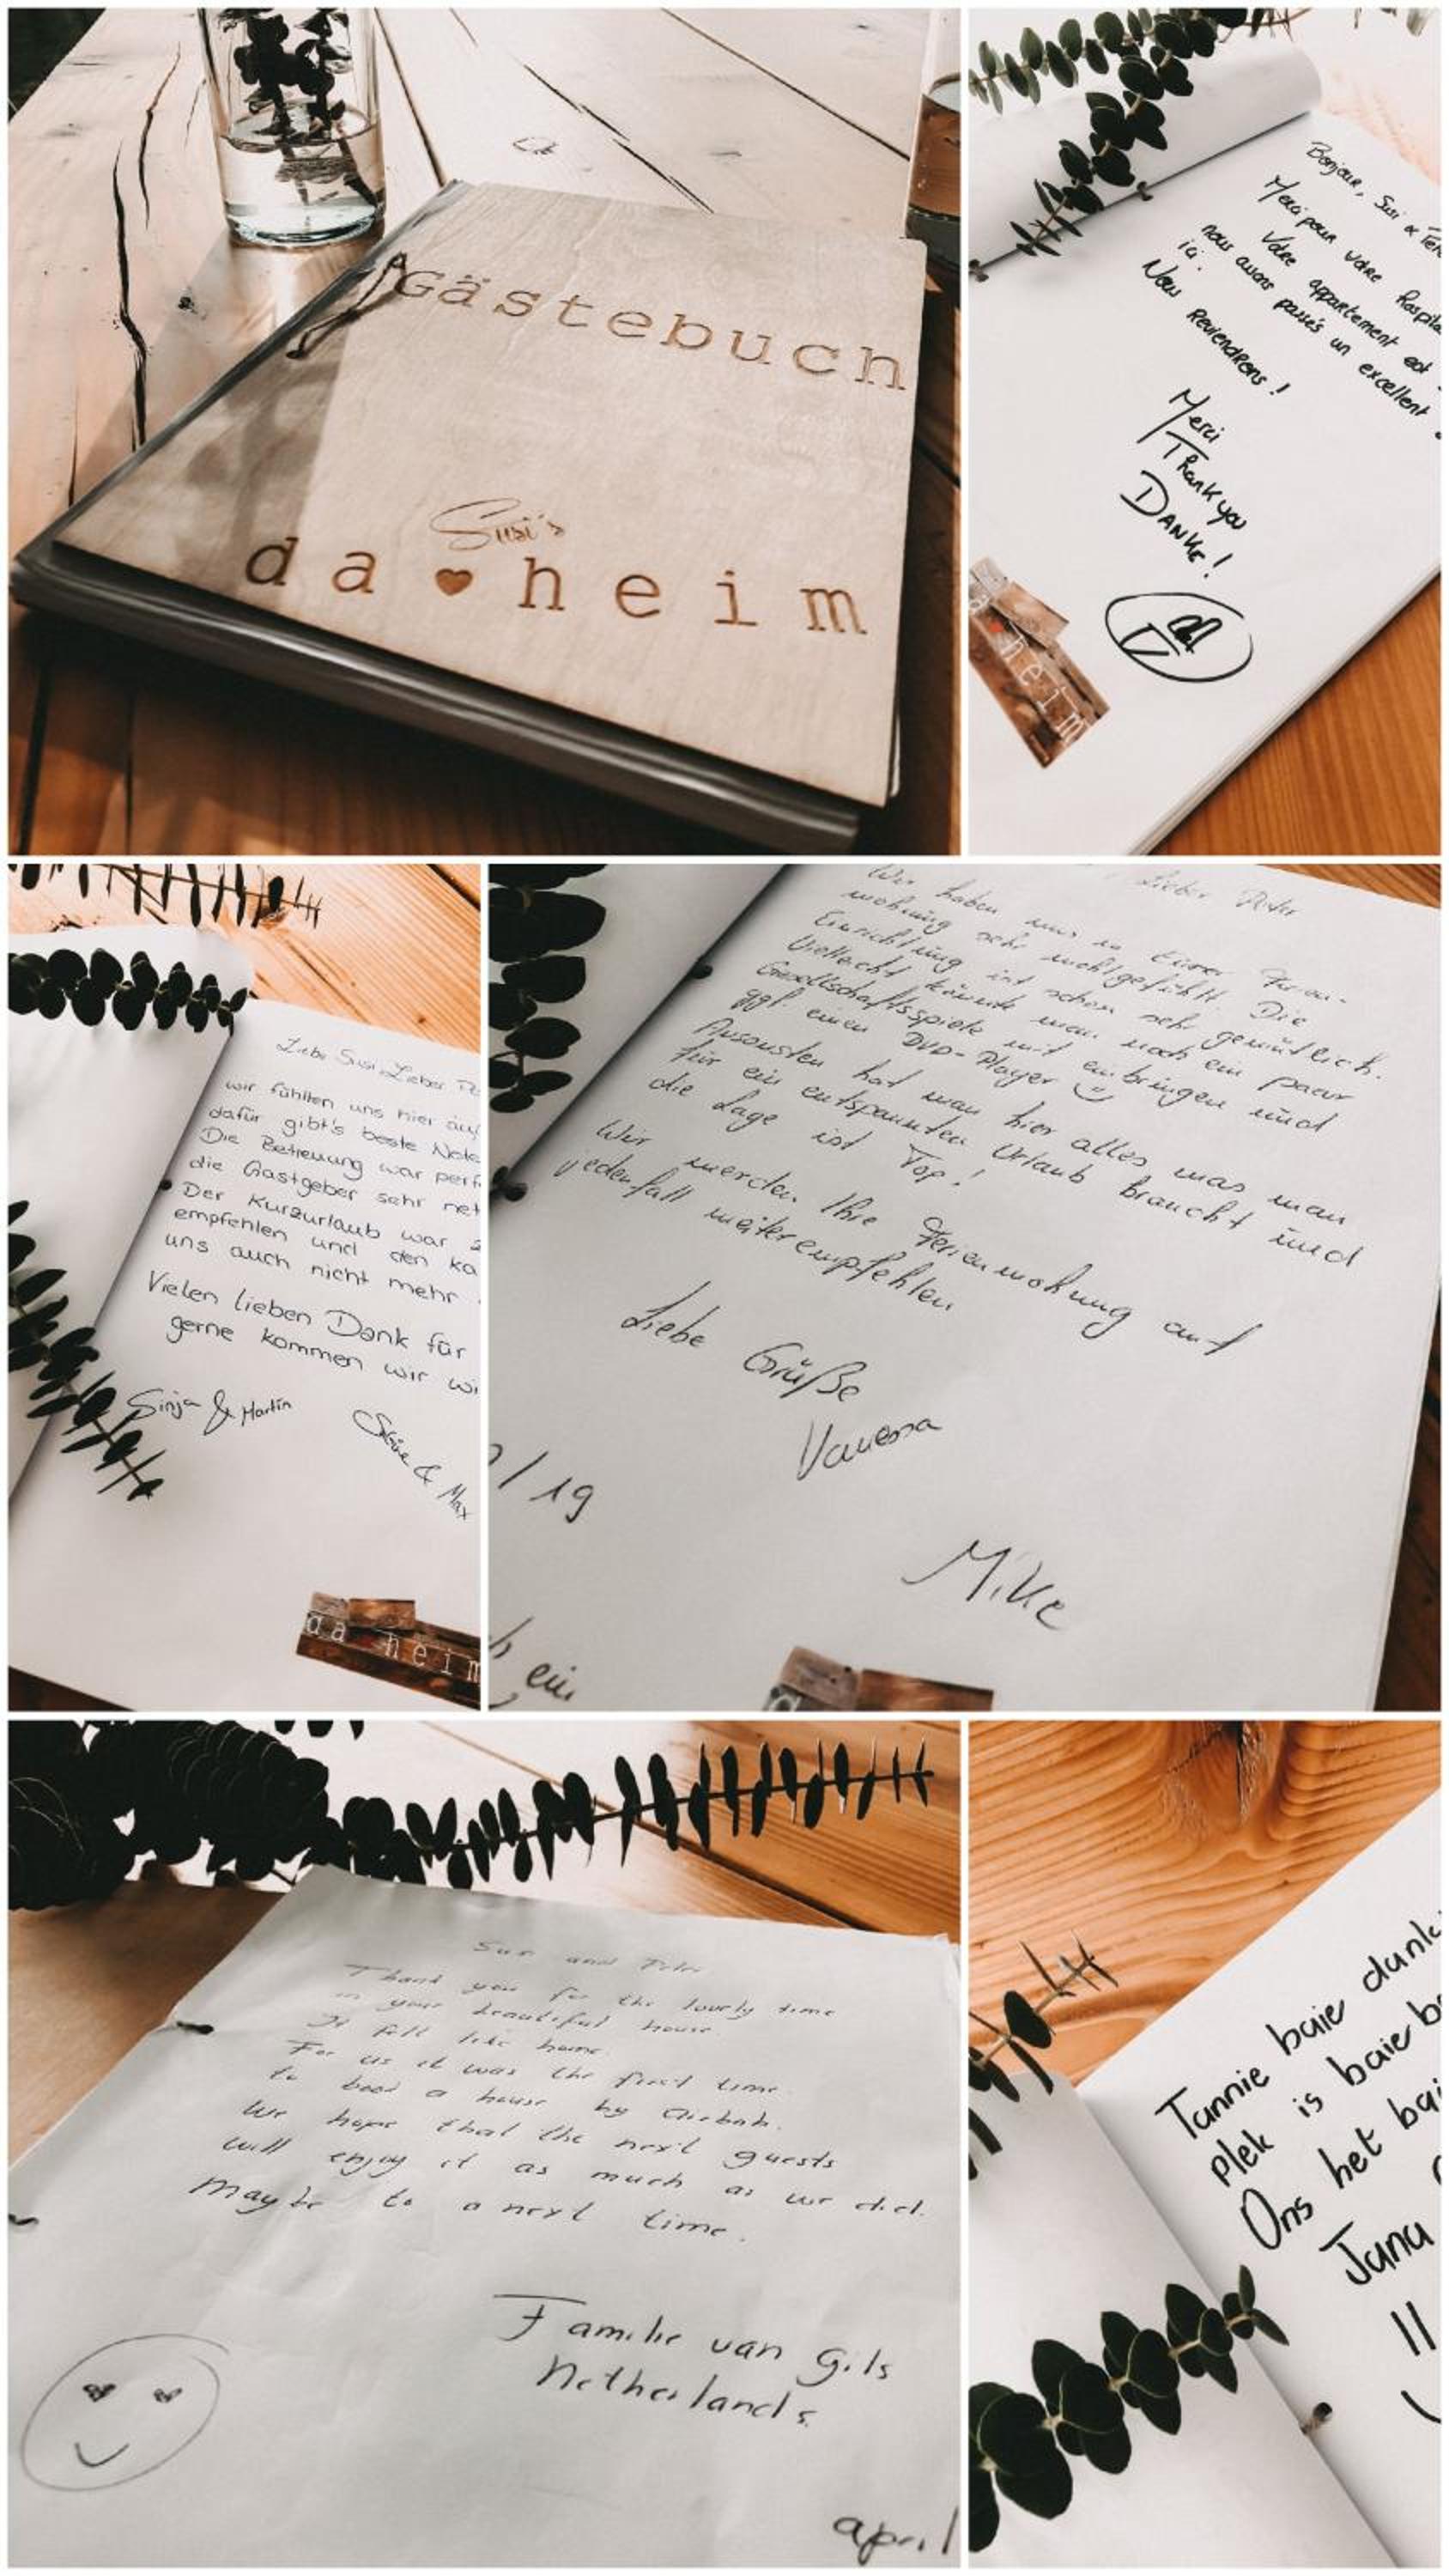 Gästebuch
Susi's
da♥heim
Bonjour, Susi &
Merci pour votre
Votre appartement est
nous avons passés un excellent
ici.
Nous reviendrons !
Merci
Thank you
DANKE!
heim
Liebe Susi, Lieber
wir fühlten uns hier
dafür gibt's beste
Die Betreuung war
die Gastgeber sehr
Der Kurzurlaub war
empfehlen und den
uns auch nicht mehr
Vielen lieben Dank für
gerne kommen wir
Sinja & Martin
Sabine & Max
da heim
Lieber Peter
Wir haben uns in Eurer Ferien-
wohnung sehr wohlgefühlt. Die
Einrichtung ist schon sehr gemütlich.
Vielleicht könnte man noch ein paar
Gesellschaftsspiele mit einbringen und
ggf. einen DVD-Player ☺
Ansonsten hat man hier alles was man
für ein entspannten Urlaub braucht und
die Lage ist Top!
Wir werden Ihre Ferienwohnung auf
jedenfall weiterempfehlen
Liebe Grüße
Vanessa
/19
Mike
ein
Susi and Peter
Thank you for the lovely time
in your beautiful house
It felt like home.
For us it was the first time
to book a house by Airbnb.
We hope that the next guests
will enjoy it as much as we did.
Maybe to a next time.
Familie van Gils
Netherlands
april
Tannie baie
plek is baie
Ons het
Jana